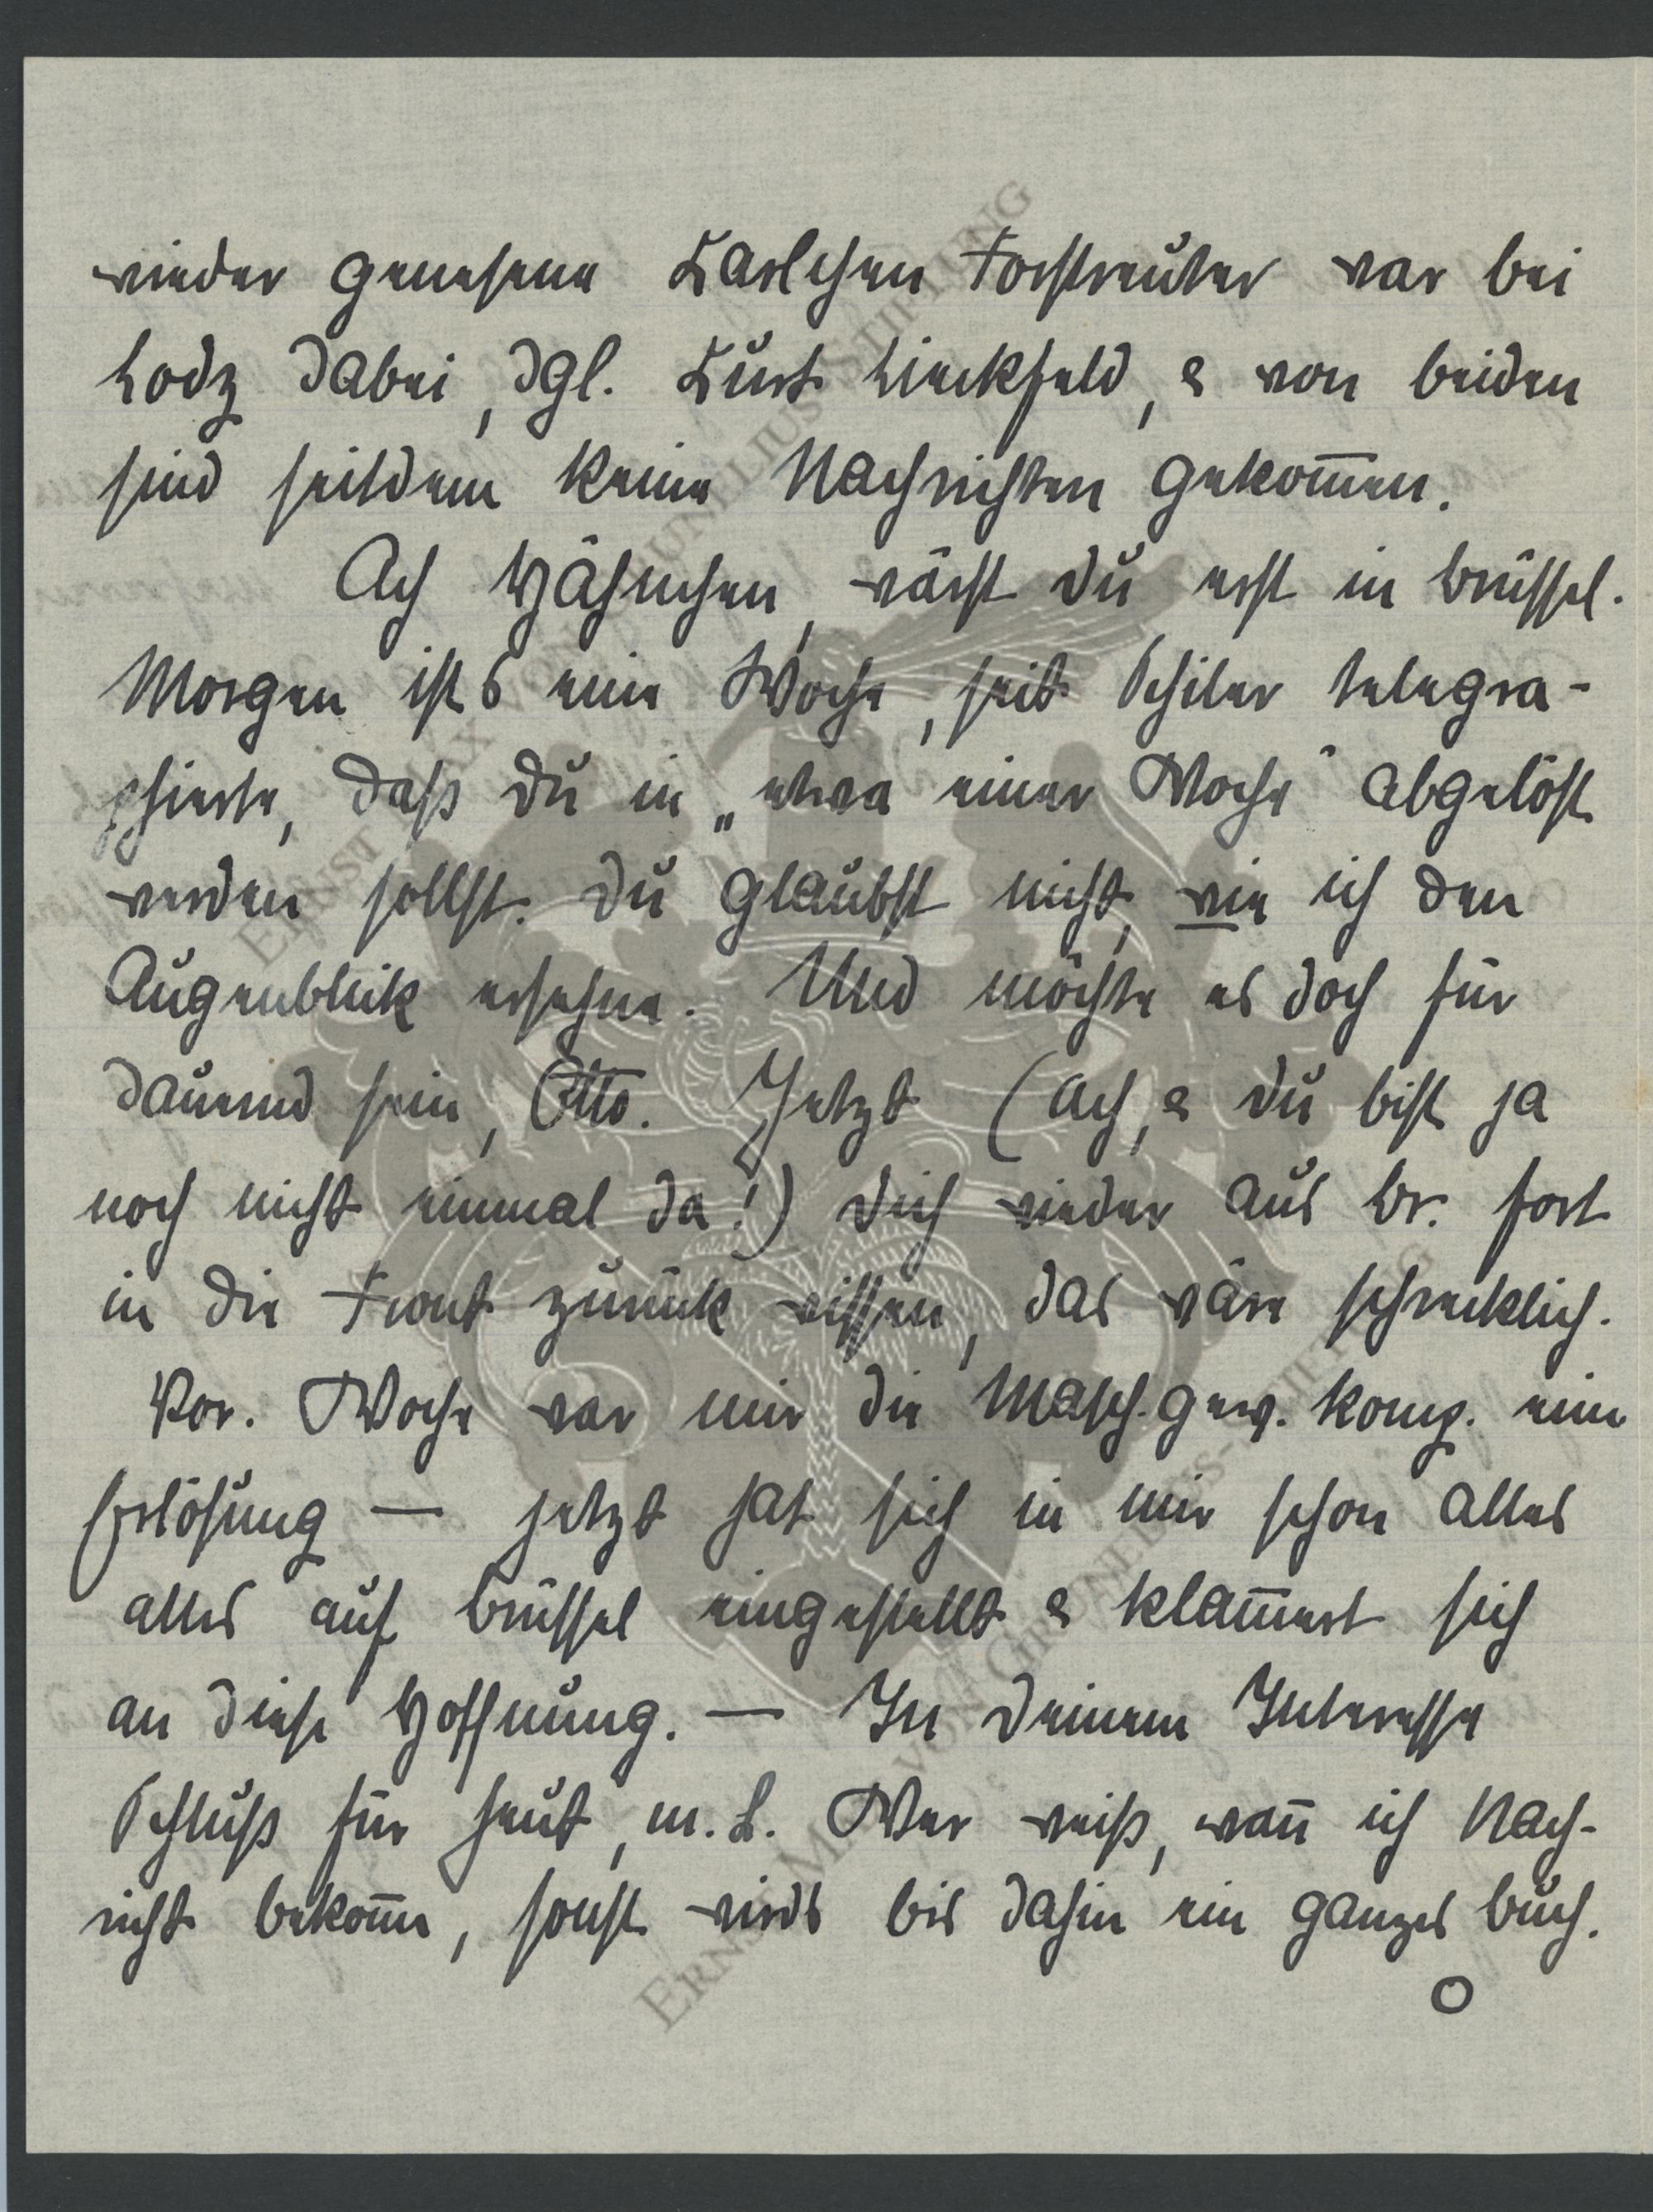 wieder genesene Karlchen Forstreuter war bei
Lodz dabei, dgl. Kurt Lieckfeld, & von beiden
sind seitdem keine Nachrichten gekom̅en.
Ach Hähnchen, wärst Du erst in Brüssel.
Morgen ist's eine Woche, seit Schiler telegra-
phierte, daß Du in „etwa einer Woche" abgelöst
werden sollst. Du glaubst nicht, wie ich den
Augenblick ersehne. Und möchte es doch für
dauernd sein, Otto. Jetzt (ach, & Du bist ja
noch nicht einmal da!) Dich wieder aus Br. fort
in die Front zurück wissen, das wäre schrecklich.
Vor. Woche war mir die Masch. gew. Komp. eine
Erlösung — jetzt hat sich in mir schon alles
alles auf Brüssel eingestellt & klam̅ert sich
an diese Hoffnung. — In Deinem Interesse
Schluß für heut, m. L. Wer weiß, wan̅ ich Nach-
richt bekom̅e, sonst wirds bis dahin ein ganzes Buch.
O
ERNST MAX VON GRUNELIUS-STIFTUNG
ERNST MAX VON GRUNELIUS-STIFTUNG